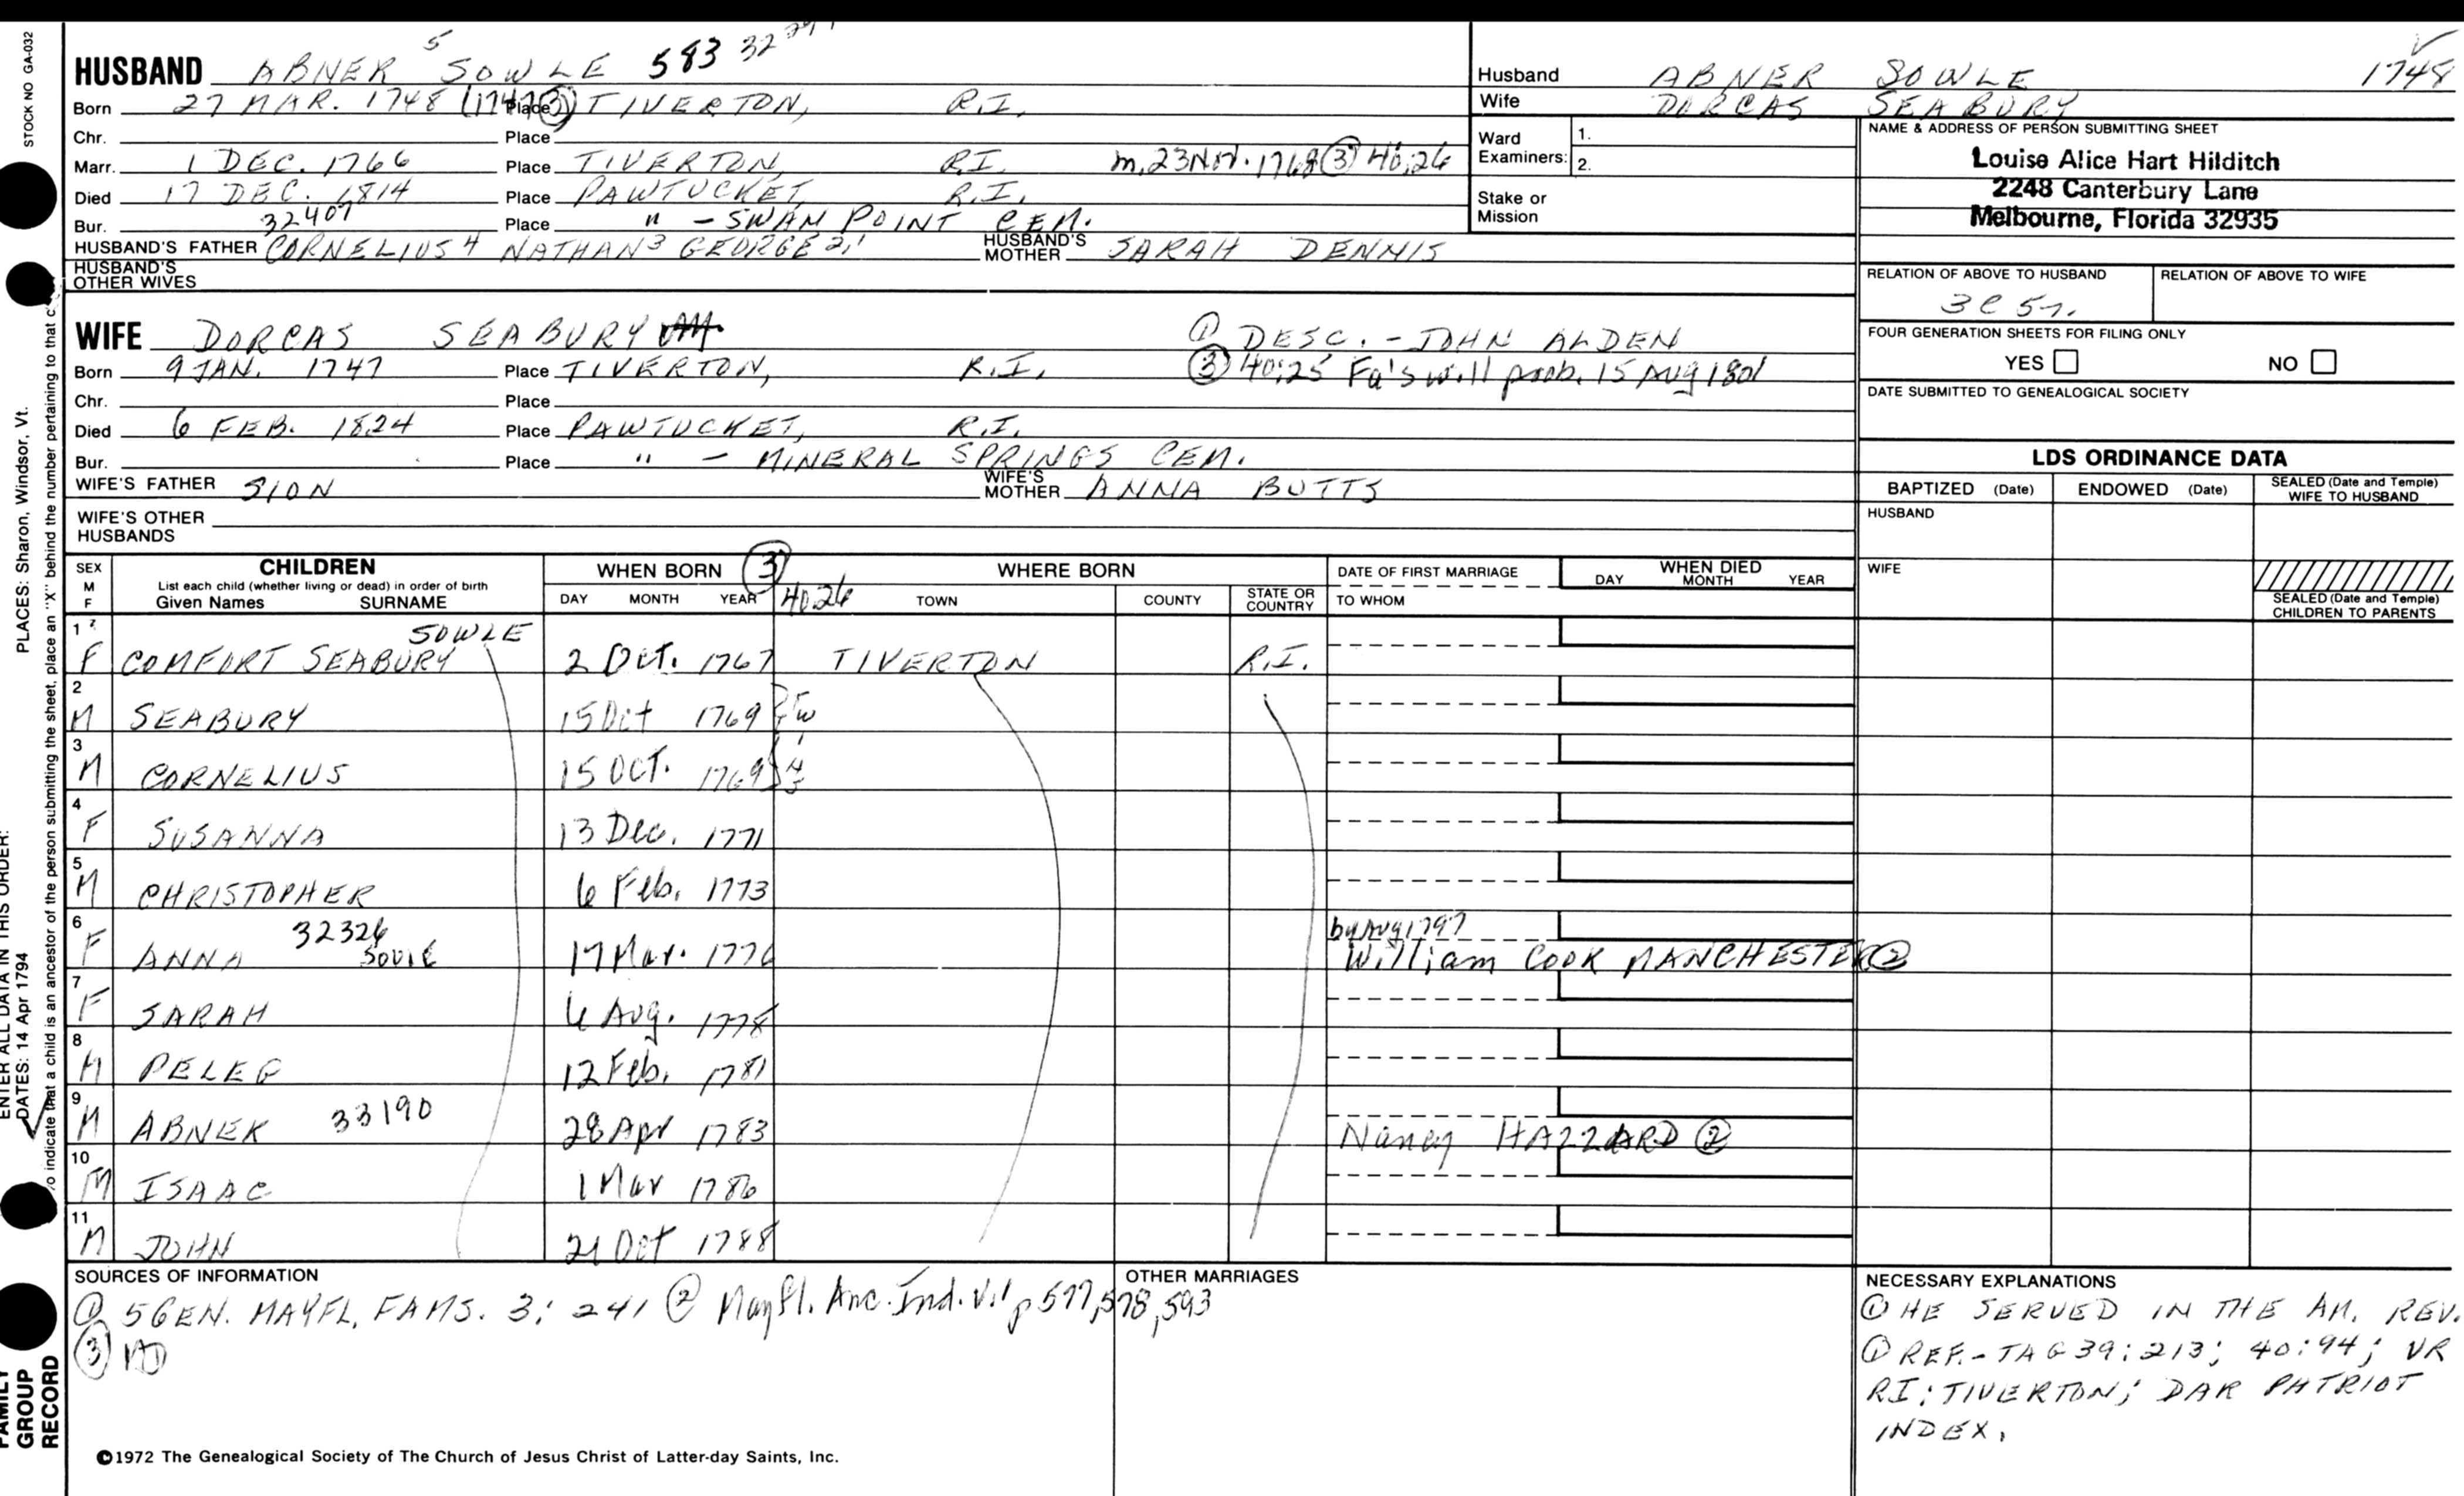 STOCK NO GA-032
HUSBAND ABNER 5 SOWLE 583 32
Born 27 MAR. 1748 (1747 3) Place TIVERTON, R.I.
Chr. Place
Marr. 1 DEC. 1766 Place TIVERTON, R.I. m. 23 Nov. 1768 (3) 40:26
Died 17 DEC. 1814 Place PAWTUCKET, R.I.
Bur. 32407 Place " - SWAN POINT CEM.
HUSBAND'S FATHER CORNELIUS 4 NATHAN 3 GEORGE 2,1 HUSBAND'S MOTHER SARAH DENNIS
HUSBAND'S OTHER WIVES
Husband ABNER SOWLE 1748
Wife DORCAS SEABURY
Ward Examiners: 1. 2.
Stake or Mission
NAME & ADDRESS OF PERSON SUBMITTING SHEET
Louise Alice Hart Hilditch
2248 Canterbury Lane
Melbourne, Florida 32935
RELATION OF ABOVE TO HUSBAND RELATION OF ABOVE TO WIFE
3C 5r.
FOUR GENERATION SHEETS FOR FILING ONLY
YES NO
DATE SUBMITTED TO GENEALOGICAL SOCIETY
WIFE DORCAS SEABURY (1) DESC. - JOHN ALDEN
Born 9 JAN. 1747 Place TIVERTON, R.I. (3) 40:25 Fa's will prob. 15 Aug 1801
Chr. Place
Died 6 FEB. 1824 Place PAWTUCKET, R.I.
Bur. Place " - MINERAL SPRINGS CEM.
WIFE'S FATHER SION WIFE'S MOTHER ANNA BUTTS
WIFE'S OTHER HUSBANDS
LDS ORDINANCE DATA
BAPTIZED (Date) ENDOWED (Date) SEALED (Date and Temple) WIFE TO HUSBAND
HUSBAND
WIFE
SEALED (Date and Temple) CHILDREN TO PARENTS
SEX M F CHILDREN List each child (whether living or dead) in order of birth Given Names SURNAME
WHEN BORN (3) 40:26 DAY MONTH YEAR
WHERE BORN TOWN COUNTY STATE OR COUNTRY
DATE OF FIRST MARRIAGE TO WHOM
WHEN DIED DAY MONTH YEAR
1 F COMFORT SEABURY SOWLE 2 Oct. 1767 TIVERTON R.I.
2 M SEABURY 15 Oct 1769
3 M CORNELIUS 15 OCT. 1769
4 F SUSANNA 13 Dec. 1771
5 M CHRISTOPHER 6 Feb. 1773
6 F ANNA 32326 Soule 17 Mar. 1776 by Aug 1797 William COOK MANCHESTER (2)
7 F SARAH 6 Aug. 1778
8 M PELEG 12 Feb. 1781
9 M ABNER 33190 28 Apr 1783 Nancy HAZZARD (2)
10 M ISAAC 1 Mar 1786
11 M JOHN 21 Oct 1788
SOURCES OF INFORMATION
(1) 5 GEN. MAYFL. FAMS. 3: 241 (2) Mayfl. Anc. Ind. V.1, p 577, 578, 593
(3)
OTHER MARRIAGES
NECESSARY EXPLANATIONS
(1) HE SERVED IN THE AM. REV.
(1) REF. - TAG 39:213; 40:94; VR
RI; TIVERTON; DAR PATRIOT
INDEX.
©1972 The Genealogical Society of The Church of Jesus Christ of Latter-day Saints, Inc.
PLACES: Sharon, Windsor, Vt.
ENTER ALL DATA IN THIS ORDER:
DATES: 14 Apr 1794
To indicate that a child is an ancestor of the person submitting the sheet, place an "X" behind the number pertaining to that c
FAMILY GROUP RECORD